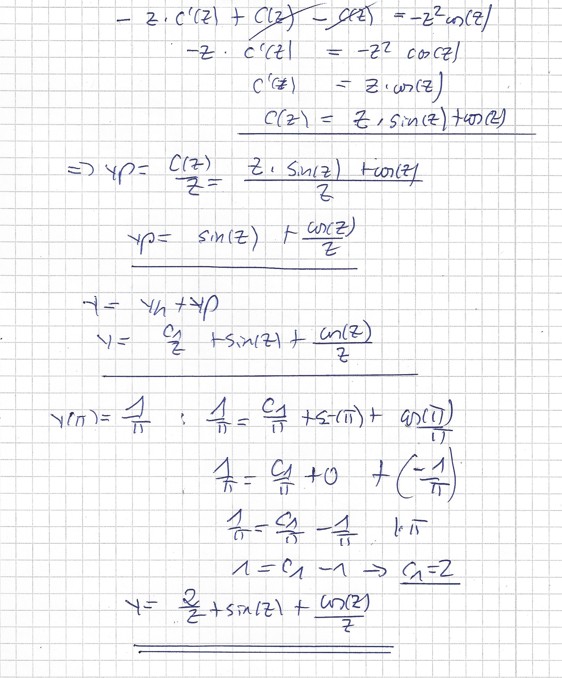 - z · C'(z) + C(z) - C(z) = -z² cos(z)
-z · C'(z) = -z² cos(z)
C'(z) = z · cos(z)
C(z) = z · sin(z) + cos(z)
=> yp = C(z)/z = (z · sin(z) + cos(z))/z
yp = sin(z) + cos(z)/z
y = yh + yp
y = C1/z + sin(z) + cos(z)/z
y(π) = 1/π : 1/π = C1/π + sin(π) + cos(π)/π
1/π = C1/π + 0 + (-1/π)
1/π = C1/π - 1/π |·π
1 = C1 - 1 → C1 = 2
y = 2/z + sin(z) + cos(z)/z